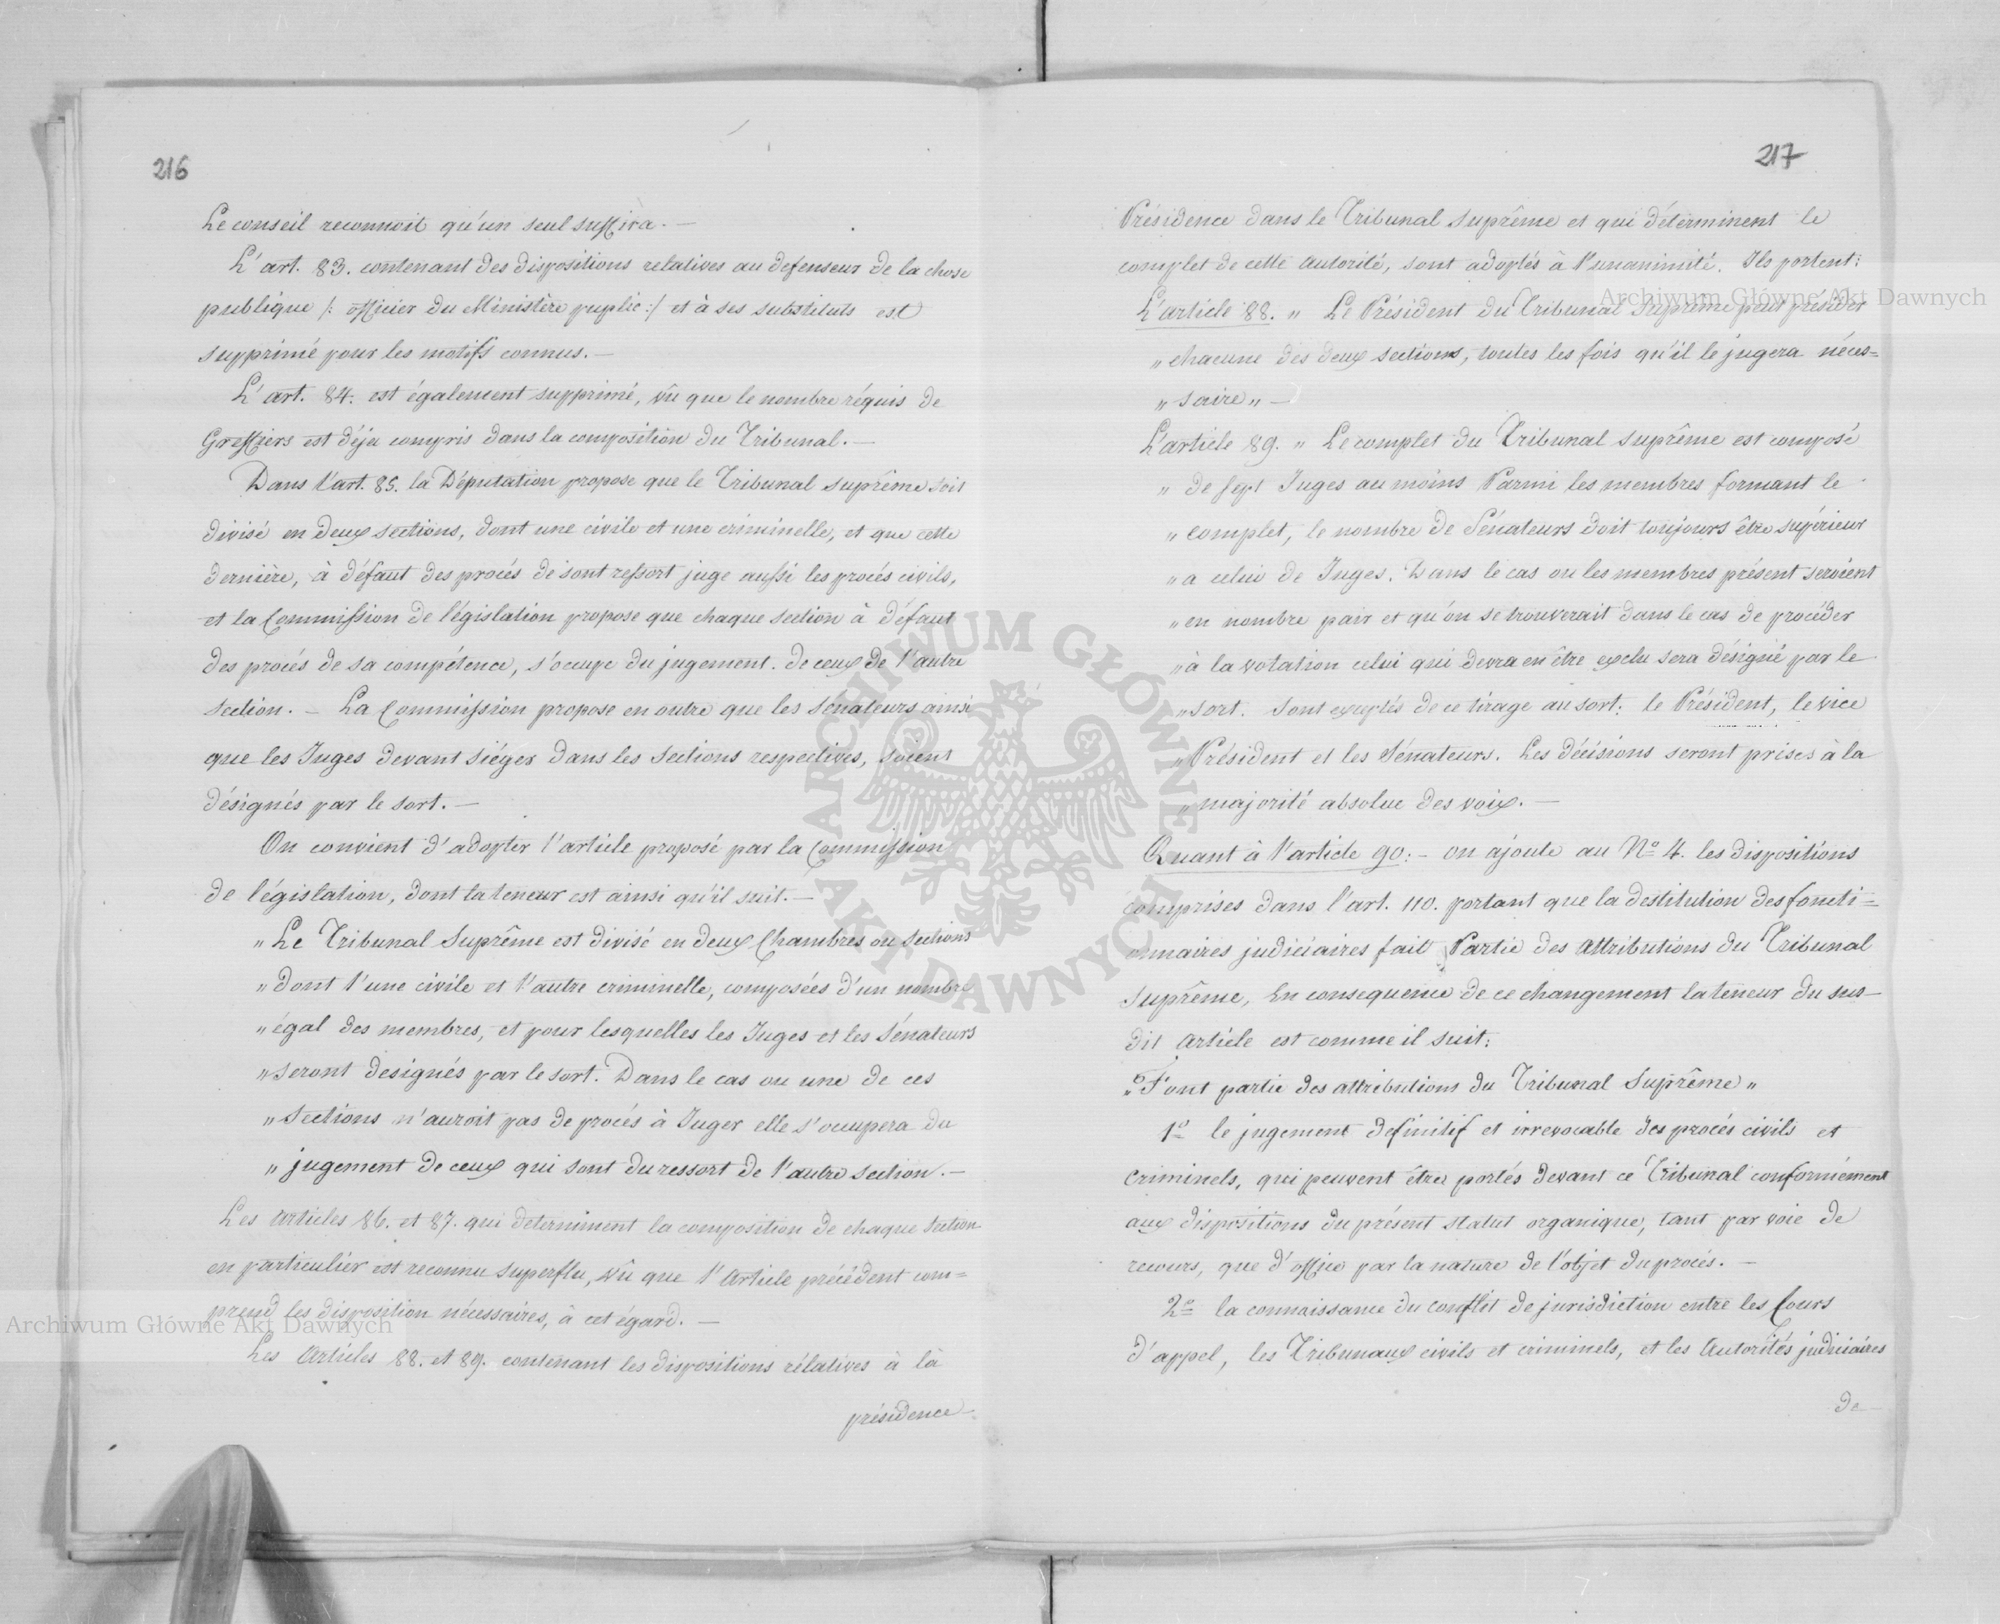 216
Le conseil reconnoit qu'un seul suffira. —
L'art. 83. contenant des dispositions relatives au defenseur de la chose
publique /: officier du Ministère puplic :/ et à ses substituts est
supprimé pour les motifs connus. —
L'art. 84. est également supprimé, vû que le nombre réquis de
Greffiers est déja compris dans la composition du Tribunal. —
Dans l'art. 85. la Députation propose que le Tribunal suprême soit
divisé en deux sections, dont une civile et une criminelle, et que cette
dernière, à défaut des procés de sont ressort juge aussi les procés civils,
et la Commission de législation propose que chaque section à défaut
des procés de sa compétence, s'occupe du jugement. de ceux de l'autre
section. — La Commission propose en outre que les Sénateurs ainsi
que les Juges devant siéger dans les sections respectives, soient
désignés par le sort. —
On convient d'adopter l'article proposé par la Commission
de législation, dont la teneur est ainsi qu'il suit. —
„ Le Tribunal Suprême est divisé en deux Chambres ou sections
„ dont l'une civile et l'autre criminelle, composées d'un nombre
„ égal des membres, et pour lesquelles les Juges et les Sénateurs
„ seront designés par le sort. Dans le cas ou une de ces
„ Sections n'auroit pas de procés à Juger elle s'occupera du
„ jugement de ceux qui sont du ressort de l'autre section. —
Les Articles 86. et 87. qui determinent la composition de chaque section
en particulier est reconnu superflu, vû que l'Article précédent com=
prend les disposition nécessaires, à cet égard. —
Les Articles 88. et 89. contenant les dispositions rélatives à là
présidence
217
Présidence dans le Tribunal Suprême et qui déterminent le
complet de cette autorité, sont adoptés à l'unanimité. Ils portent:
L'article 88. „ Le Président du Tribunal Suprême peut présider
„ chacune des deux sections, toutes les fois qu'il le jugera néces=
„ saire „ —
L'article 89. „ Le complet du Tribunal Suprême est composé
„ de sept Juges au moins Parmi les membres formant le
„ complet, le nombre de Sénateurs doit toujours être supérieur
„ a celui de Juges. Dans le cas ou les membres présent seroient
„ en nombre pair et qu'on se trouverait dans le cas de procéder
„ à la votation celui qui devra en être exclu sera désigné par le
„ sort. Sont exeptés de ce tirage au sort: le Président, le vice
„ Président et les Sénateurs. Les décisions seront prises à la
„ majorité absolue des voix. —
Quant à l'article 90: — on ajoute au No 4. les dispositions
comprises dans l'art. 110. portant que la destitution des foncti=
onnaires judiciaires fait Partie des attributions du Tribunal
Suprême, En consequence de ce changement la teneur du sus-
dit Article est comme il suit:
„ Font partie des attributions du Tribunal Suprême „
1o le jugement définitif et irrevocable des procés civils et
Criminels, qui peuvent être portés devant ce Tribunal conformément
aux dispositions du présent statut organique, tant par voie de
recours, que d'office par la nature de l'objet du procés. —
2o la connaissance du conflit de jurisdiction entre les Cours
d'appel, les Tribunaux civils et criminels, et les Autorités judiciaires
de
Archiwum Główne Akt Dawnych
Archiwum Główne Akt Dawnych
ARCHIWUM GŁÓWNE AKT DAWNYCH